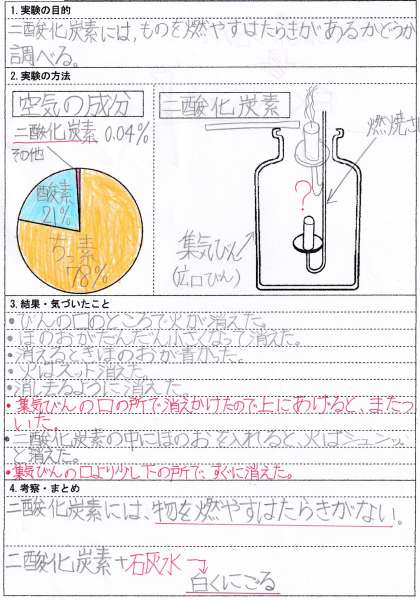 1. 実験の目的
二酸化炭素には，ものを燃やすはたらきがあるかどうか
調べる。
2. 実験の方法
空気の成分
二酸化炭素 0.04%
その他
酸素
21%
ちっ素
78%
二酸化炭素
燃焼さ
?
集気びん
(広口びん)
3. 結果・気づいたこと
・びんの口のところで火が消えた。
・ほのおがだんだん小さくなって消えた。
・消えるときほのおが青かった。
・火はスッと消えた。
・消し去るように消えた。
・集気びんの口の所で消えかけたので上にあげると、またつ
いた。
・二酸化炭素の中にほのおを入れると、火はシュンッ
と消えた。
・集気びんの口より少し下の所で、すぐに消えた。
4. 考察・まとめ
二酸化炭素には、物を燃やすはたらきがない。
二酸化炭素+石灰水→
白くにごる